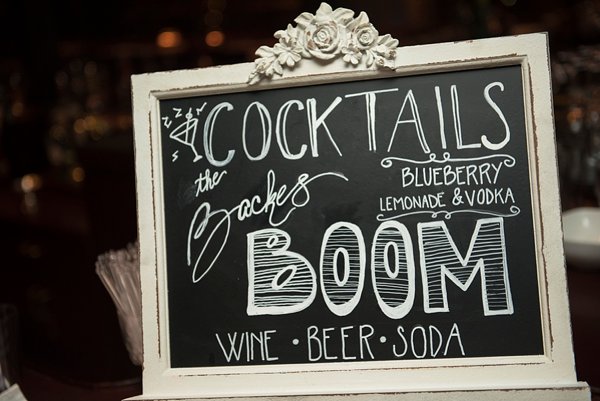 COCKTAILS
the Backes BOOM
BLUEBERRY
LEMONADE & VODKA
WINE • BEER • SODA